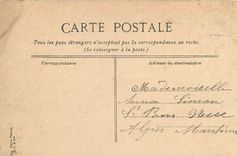 CARTE POSTALE
Tous les pays étrangers n'acceptent pas la correspondance au recto.
(Se renseigner à la poste.)
Correspondance
Adresse du destinataire
Mademoiselle
Simon
Alpes Maritimes